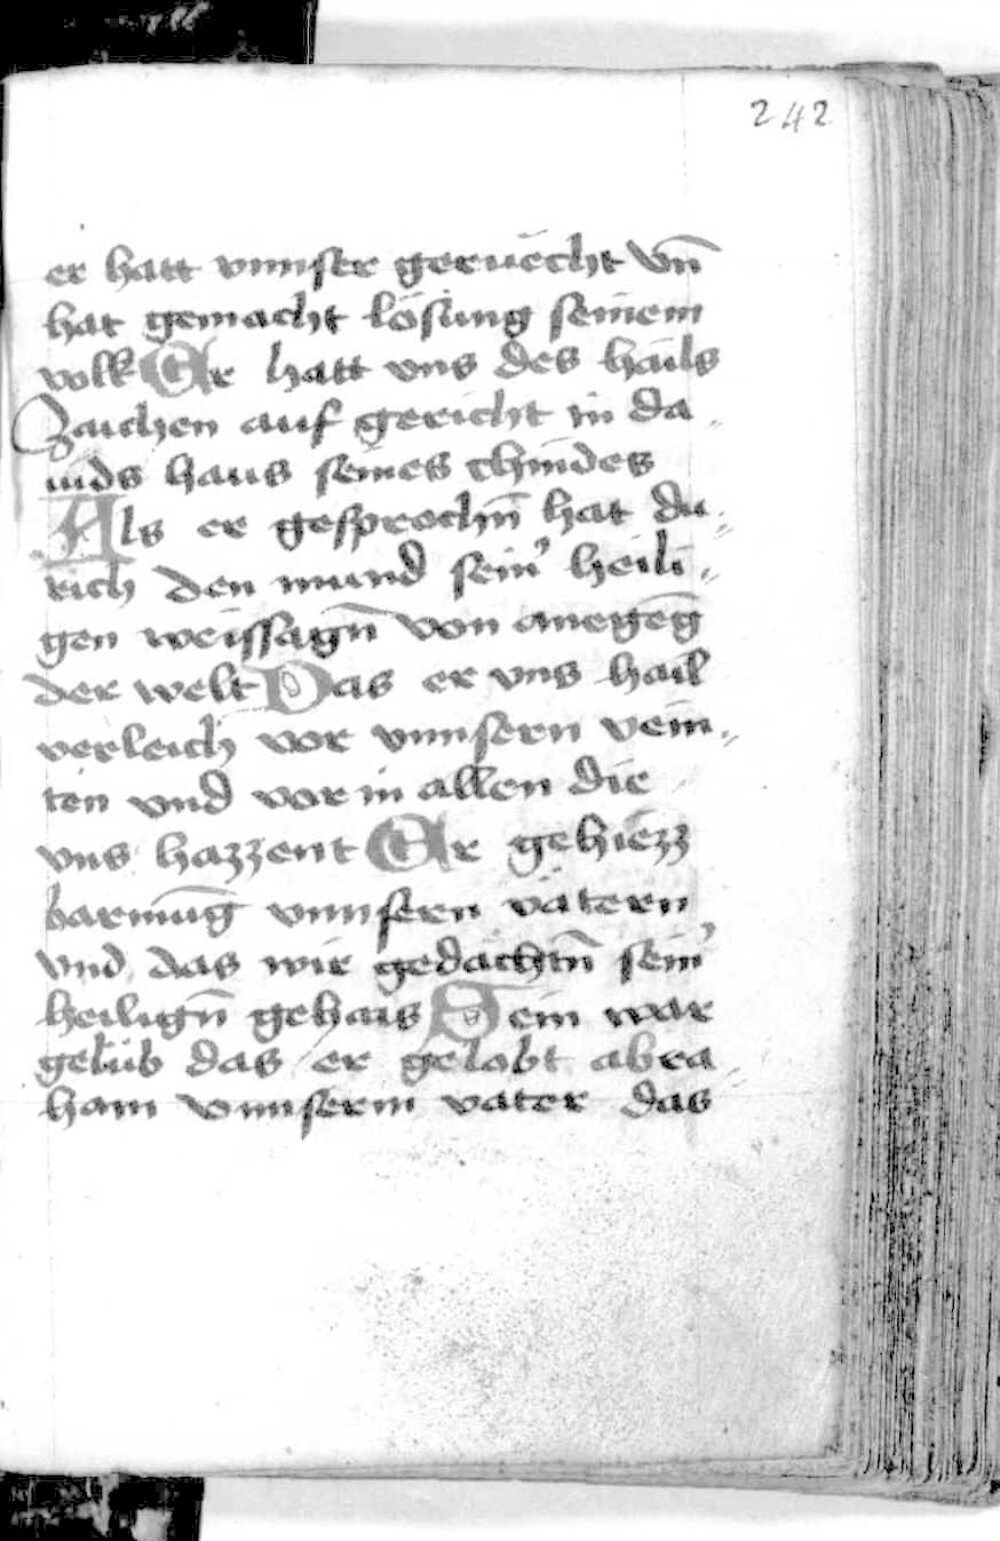 242
er hatt vnnser geruecht vn̄
hat gemacht lösung seinem
volk Er hatt vns des hails
Zaichen auf gericht in da
uids haus seines chindes
Als er gesprochn̄ hat du„
rich den mund sein’ heili„
gen weissagn̄ von anegēg
der welt Das er vns hail
verleich vor vnnsern vein„
ten vnd vor in allen die
vns hazzent Er gehiezz
barmūg vnnsern vätern
vnd das wir gedachtn̄ sein’
heilign̄ gehais Sein war
gelüb das er gelobt abra„
ham vnnserm vater das